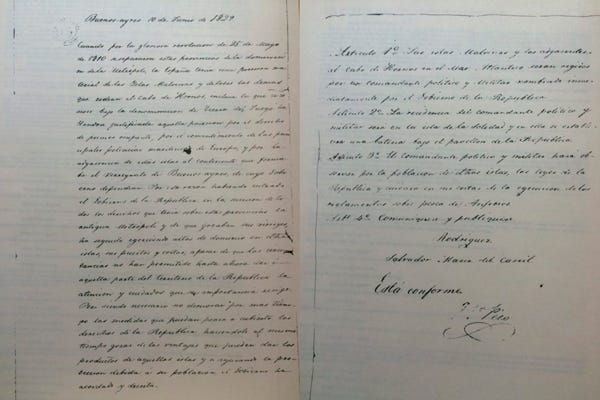 Buenos-ayres 10 de Junio de 1829
Cuando por la gloriosa revolucion de 25 de Mayo
de 1810 se separaron estas provincias de la dominacion
de la Metrópoli, la España tenia una posesion ma-
terial de las Islas Malvinas y de todas las demas
que rodean al Cabo de Hornos, incluso la que se
bajo la denominacion de Tierra del Fuego ha-
justificada aquella posesion por el derecho
de primer ocupante, por el consentimiento de las prin-
cipales potencias maritimas de Europa, y por la
adyacencia de estas islas al continente que forma-
ba el Vireynato de Buenos ayres, de cuyo Gobi-
erno dependian. Por esta razon habiendo entrado
el Gobierno de la Republica en la sucesion de to-
dos los derechos que tenia sobre estas provincias la
antigua Metrópoli y de que gozaban sus vireyes,
ha seguido ejerciendo actos de dominio en dichas
islas, sus puertos y costas, apesar de que las circuns-
tancias no han permitido hasta ahora dar á
aquella parte del territorio de la Republica la
atencion y cuidados que su importancia exige.
Pero siendo necesario no demorar por mas tiem-
po las medidas que puedan poner á cubierto los
derechos de la Republica haciendole al mismo
tiempo gozar de las ventajas que pueden dar los
productos de aquellas islas y asegurando la pro-
teccion debida á su poblacion el Gobierno ha
acordado y decreta.
Articulo 1º Las islas Malvinas y las adyacentes
al Cabo de Hornos en el Mar Atlantico seran regidas
por un comandante politico y militar nombrado inme-
diatamente por el Gobierno de la Republica
Articulo 2º La residencia del comandante politico y
militar sera en la isla de la Soledad y en ella se estable-
cera una bateria bajo el pavellon de la Republica
Articulo 3º El comandante politico y militar hará ob-
servar por la poblacion de dichas islas, las leyes de la
Republica y cuidara en sus costas de la ejecucion de los
reglamentos sobre pesca de Anfibios
Artº 4º Comuniquese y publiquese.
Rodriguez
Salvador Maria del Carril
Está conforme